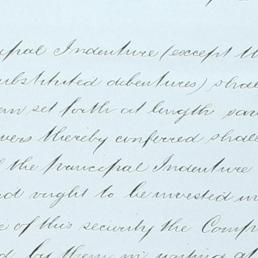 cipal Indenture (except th
substituted debentures) shal
en set forth at length sav
wers thereby conferred shall
f the principal Indenture
nd ought to be invested in
e of this security the Comp
d by them in